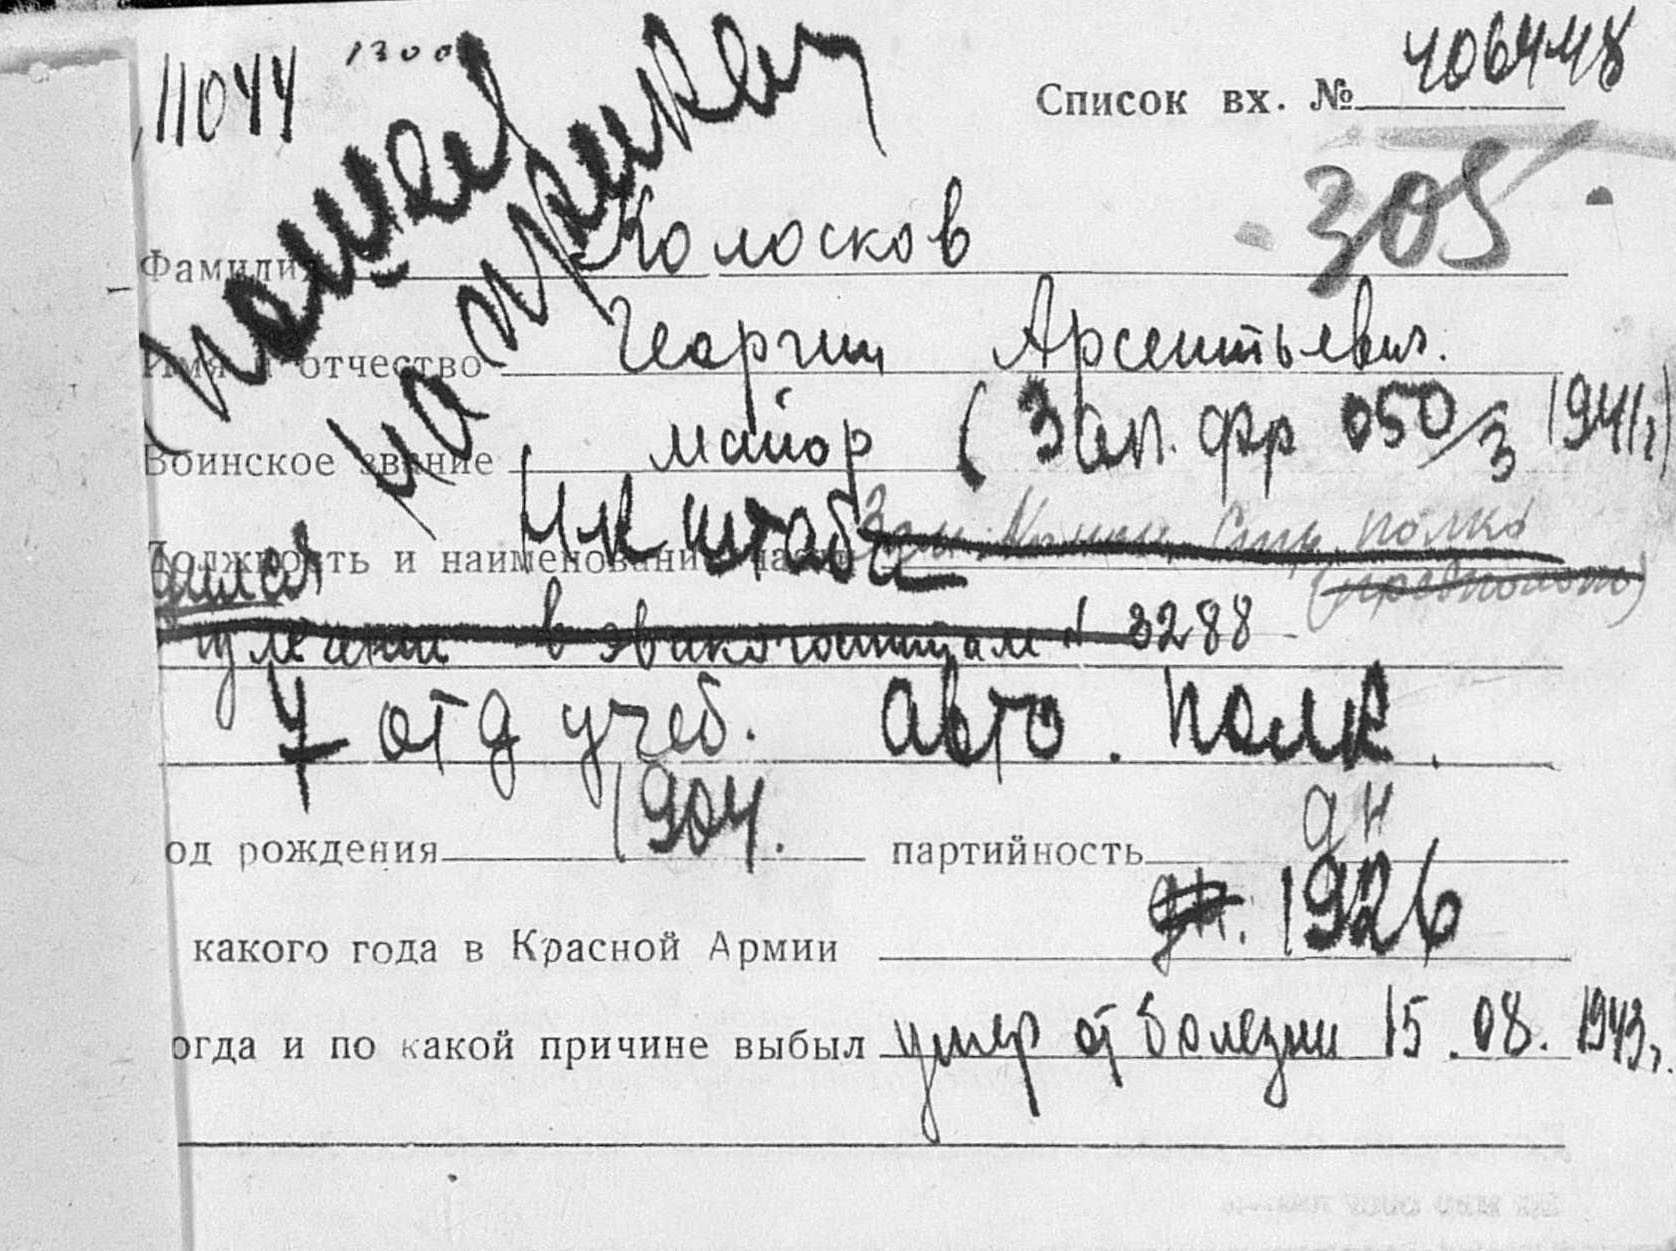 11044 1300
Список вх. № 406448
305
помещ
на карточку
Фамилия Колосков
Имя и отчество Георгий Арсентьевич.
Воинское звание майор (Зап. Фр 050/3 1941г)
Должность и наименование части НК штаба Зам. Команд. Стр. полка
в эвакогоспитале № 3288
7 отд учеб. авто. полк.
од рождения 1904. партийность дн
какого года в Красной Армии дн. 1926
огда и по какой причине выбыл умер от болезни 15.08.1943г.